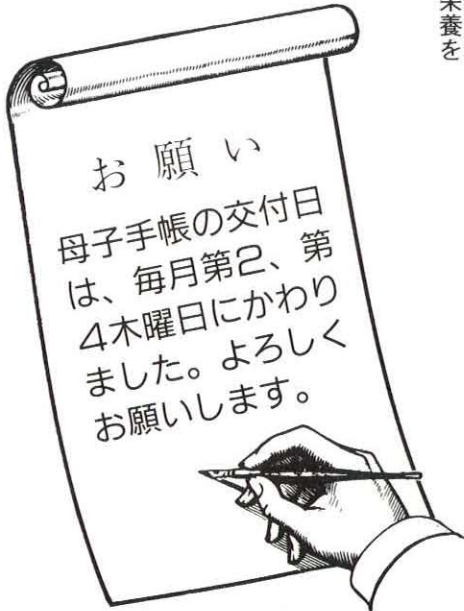 栄養を
お願い
母子手帳の交付日
は、毎月第2、第
4木曜日にかわり
ました。よろしく
お願いします。